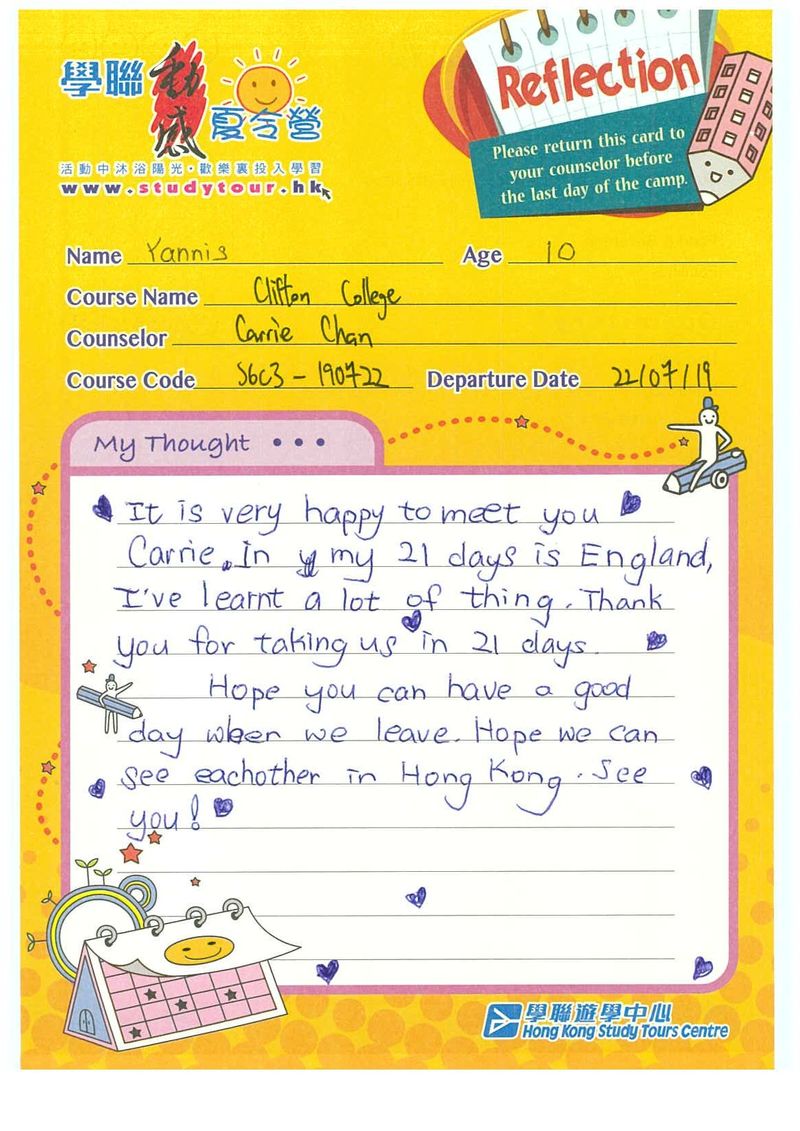 學聯動感夏令營
活動中沐浴陽光·歡樂裏投入學習
www.studytour.hk
Reflection
Please return this card to
your counselor before
the last day of the camp.
Name Yannis Age 10
Course Name Clifton College
Counselor Carrie Chan
Course Code S6C3 - 190722 Departure Date 22/07/19
My Thought • • •
It is very happy to meet you
Carrie. In my 21 days is England,
I've learnt a lot of thing. Thank
you for taking us in 21 days.
Hope you can have a good
day when we leave. Hope we can
see eachother in Hong Kong. See
you!
學聯遊學中心
Hong Kong Study Tours Centre